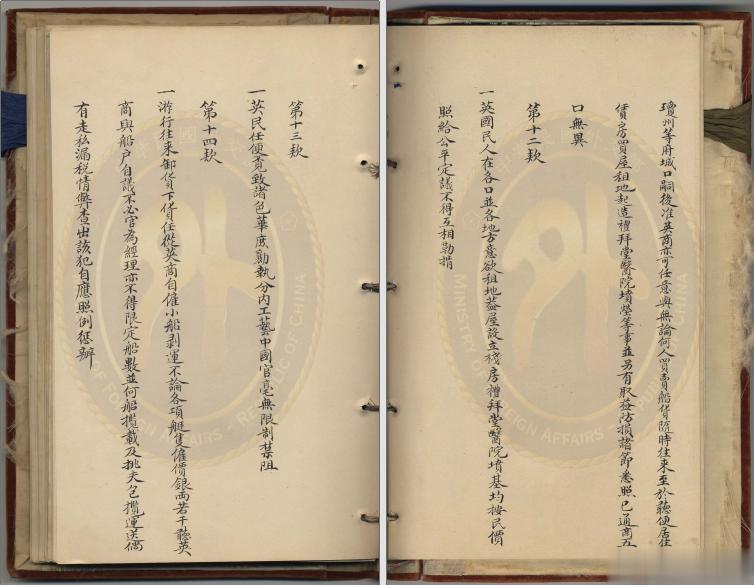 瓊州等府城口嗣後准英商亦可任意與無論何人買賣船貨隨時往來至於聽便居住
賃房買屋租地起造禮拜堂醫院墳塋等事並另有取益防損諸節悉照已通商五
口無異
第十二欵
一英國民人在各口並各地方意欲租地蓋屋設立棧房禮拜堂醫院墳基均按民價
照給公平定議不得互相勒掯
MINISTRY OF FOREIGN AFFAIRS
第十三欵
一英民任便覓致諸色華庶勷執分內工藝中國官毫無限制禁阻
第十四欵
一游行往來卸貨下貨任從英商自僱小船剝運不論各項艇隻僱價銀兩若干聽英
商與船戶自議不必官為經理亦不得限定船數並何船攬載及挑夫包攬運送偶
有走私漏稅情弊查出該犯自應照例懲辦
OF FOREIGN AFFAIRS - REPUBLIC OF CHINA